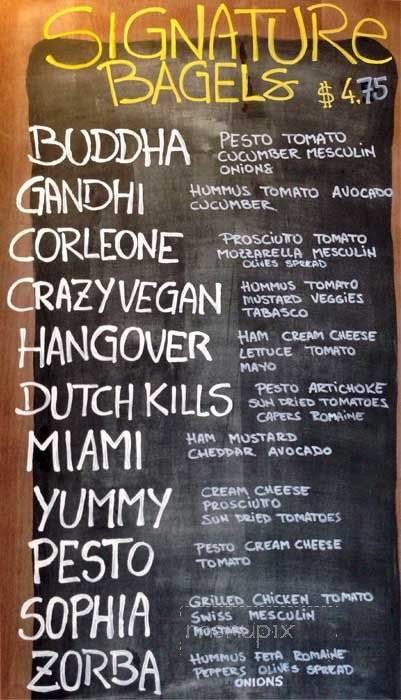 SIGNATURE
BAGELS $ 4.75
BUDDHA
PESTO TOMATO
CUCUMBER MESCULIN
ONIONS
GANDHI
HUMMUS TOMATO AVOCADO
CUCUMBER
CORLEONE
PROSCIUTTO TOMATO
MOZZARELLA MESCULIN
OLIVES SPREAD
CRAZY VEGAN
HUMMUS TOMATO
MUSTARD VEGGIES
TABASCO
HANGOVER
HAM CREAM CHEESE
LETTUCE TOMATO
MAYO
DUTCH KILLS
PESTO ARTICHOKE
SUN DRIED TOMATOES
CAPERS ROMAINE
MIAMI
HAM MUSTARD
CHEDDAR AVOCADO
YUMMY
CREAM CHEESE
PROSCIUTTO
SUN DRIED TOMATOES
PESTO
PESTO CREAM CHEESE
TOMATO
SOPHIA
GRILLED CHICKEN TOMATO
SWISS MESCULIN
MUSTARD
menupix
ZORBA
HUMMUS FETA ROMAINE
PEPPERS OLIVES SPREAD
ONIONS